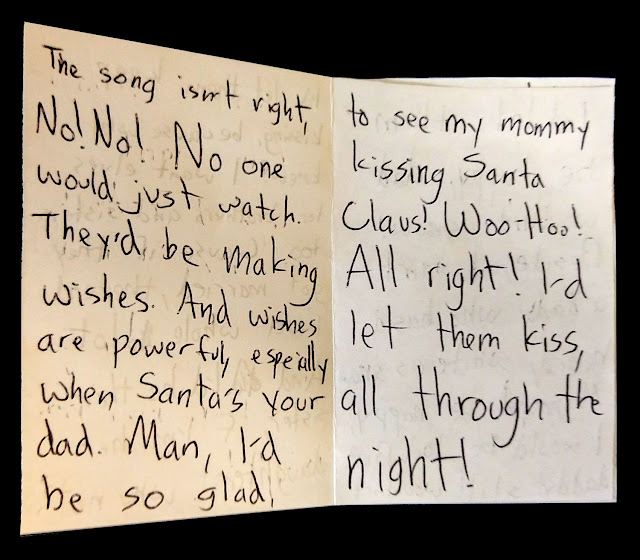 The song isn't right,
No! No! No one
would just watch.
They'd, be making
wishes. And wishes
are powerful, espeially
when Santa's your
dad. Man, I'd
be so glad,
to see my mommy
kissing Santa
Claus! Woo-Hoo!
All right! I'd
let them kiss,
all through the
night!